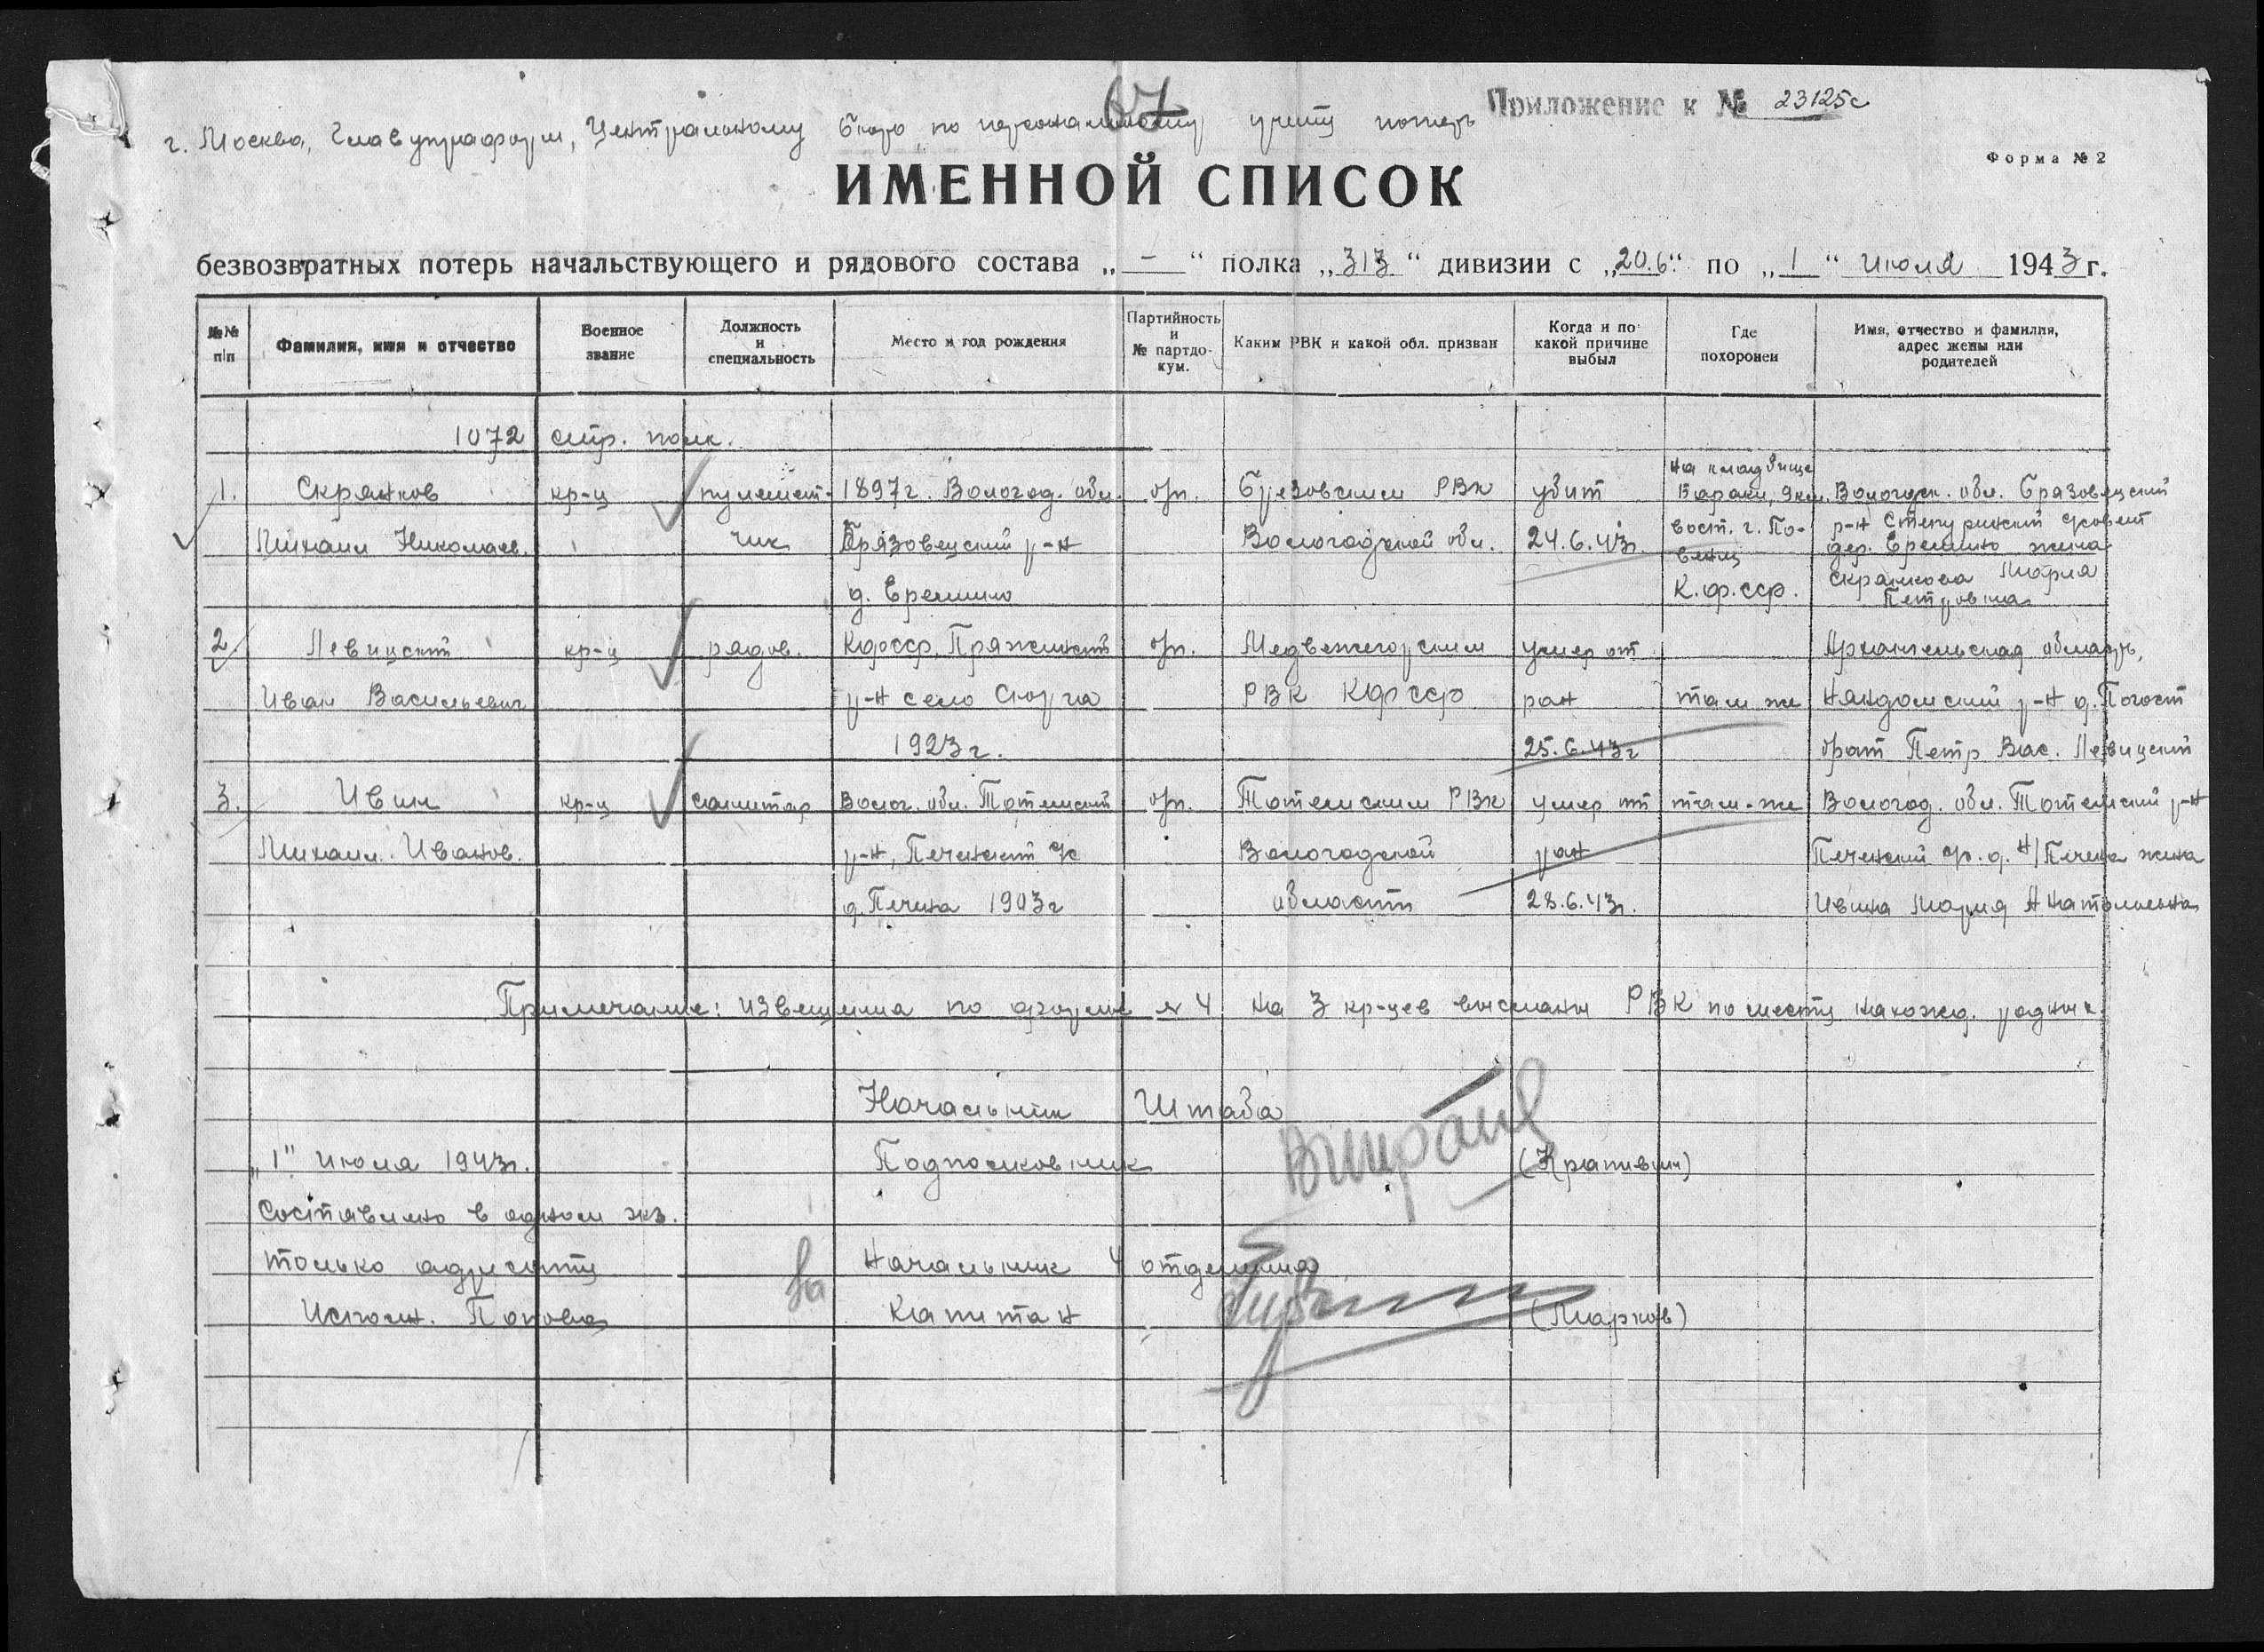 67
Приложение к № 23125с
г. Москва, Главупраформ, Центральному бюро по персональному учету потерь
Форма № 2
ИМЕННОЙ СПИСОК
безвозвратных потерь начальствующего и рядового состава „ — “ полка „313“ дивизии с „20.6.“ по „1“ июля 1943 г.
№№ п/п
Фамилия, имя и отчество
Военное звание
Должность и специальность
Место и год рождения
Партийность и № партдокум.
Каким РВК и какой обл. призван
Когда и по какой причине выбыл
Где похоронен
Имя, отчество и фамилия, адрес жены или родителей
1072 стр. полк.
1. Скрянков кр-ц пулемет- 1897г. Вологод. обл. б/п. Грязовецким РВК убит на кладбище Бараки, 9км. Вологодск. обл. Грязовецкий
Михаил Николаев. чик Грязовецкий р-н Вологодской обл. 24.6.43г. вост. г. По- р-н Степуринский с/совет
венец дер. Еремино жена
д. Еремино К.ф.сср. Скрянкова Мария
Петровна
2 Левицкий кр-ц рядов. Кфсср, Пряжинский б/п. Медвежегорским умер от Архангельская область,
Иван Васильевич р-н село Сюрга РВК Кфсср ран там же Няндомский р-н д. Погост
1923г. 25.6.43г брат Петр Вас. Левицкий
3. Ивин кр-ц санитар Волог. обл. Тотемский б/п. Тотемским РВК умер от там-же Вологод. обл. Тотемский р-н
Михаил Иванов. р-н, Печенский с/с Вологодской ран Печенский с/с. д. Н/Печена жена
д. Печена 1903г области 28.6.43г. Ивина Мария Анатольевна
Примечание: извещения по форме № 4 на 3 кр-цев высланы РВК по месту нахожд. родных.
Начальник Штаба
„1“ июля 1943г. Подполковник (Крапивин)
Составлено в одном экз.
только адресату За Начальник 4 отделения
Исполн. Попова Капитан (Марков)